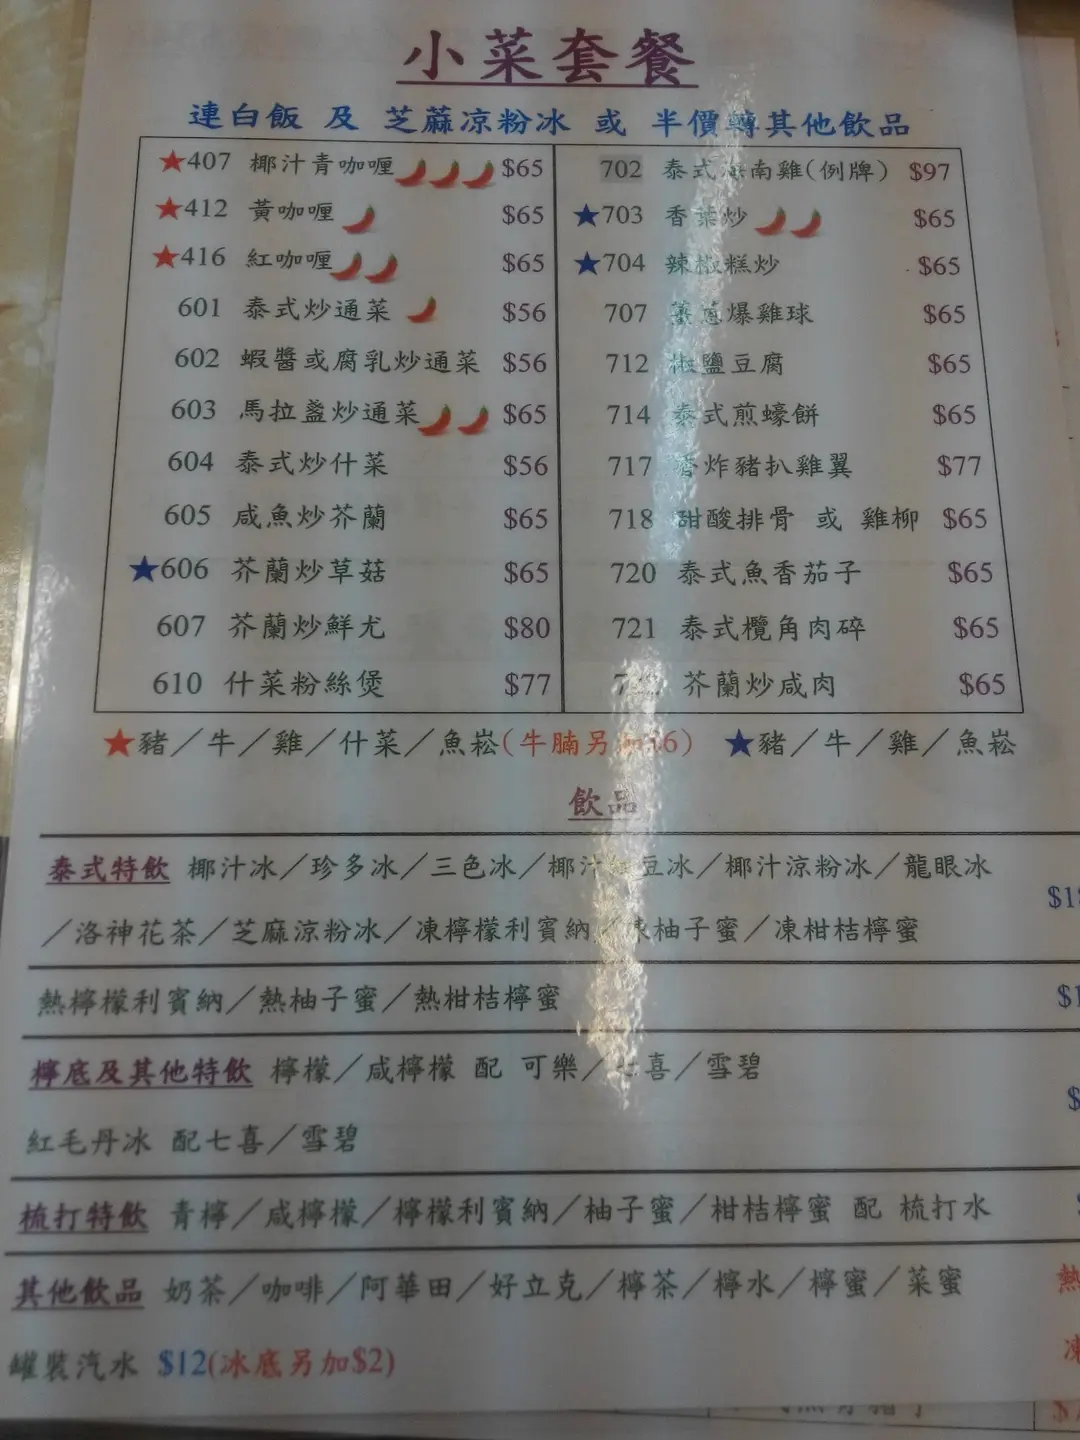 小菜套餐
連白飯 及 芝蔴凉粉冰 或 半價轉其他飲品
★407 椰汁青咖喱 $65
★412 黃咖喱 $65
★416 紅咖喱 $65
601 泰式炒通菜 $56
602 蝦醬或腐乳炒通菜 $56
603 馬拉盞炒通菜 $65
604 泰式炒什菜 $56
605 咸魚炒芥蘭 $65
★606 芥蘭炒草菇 $65
607 芥蘭炒鮮尤 $80
610 什菜粉絲煲 $77
702 泰式海南雞(例牌) $97
★703 香葉炒 $65
★704 辣椒糕炒 $65
707 薑蔥爆雞球 $65
712 椒鹽豆腐 $65
714 泰式煎蠔餅 $65
717 香炸豬扒雞翼 $77
718 甜酸排骨 或 雞柳 $65
720 泰式魚香茄子 $65
721 泰式欖角肉碎 $65
芥蘭炒咸肉 $65
★豬／牛／雞／什菜／魚崧(牛腩另加$6) ★豬／牛／雞／魚崧
飲品
泰式特飲 椰汁冰／珍多冰／三色冰／椰汁紅豆冰／椰汁涼粉冰／龍眼冰
／洛神花茶／芝麻涼粉冰／凍檸檬利賓納／凍柚子蜜／凍柑桔檸蜜
熱檸檬利賓納／熱柚子蜜／熱柑桔檸蜜
檸底及其他特飲 檸檬／咸檸檬 配 可樂／七喜／雪碧
紅毛丹冰 配七喜／雪碧
梳打特飲 青檸／咸檸檬／檸檬利賓納／柚子蜜／柑桔檸蜜 配 梳打水
其他飲品 奶茶／咖啡／阿華田／好立克／檸茶／檸水／檸蜜／菜蜜 熱
罐裝汽水 $12(冰底另加$2) 凍